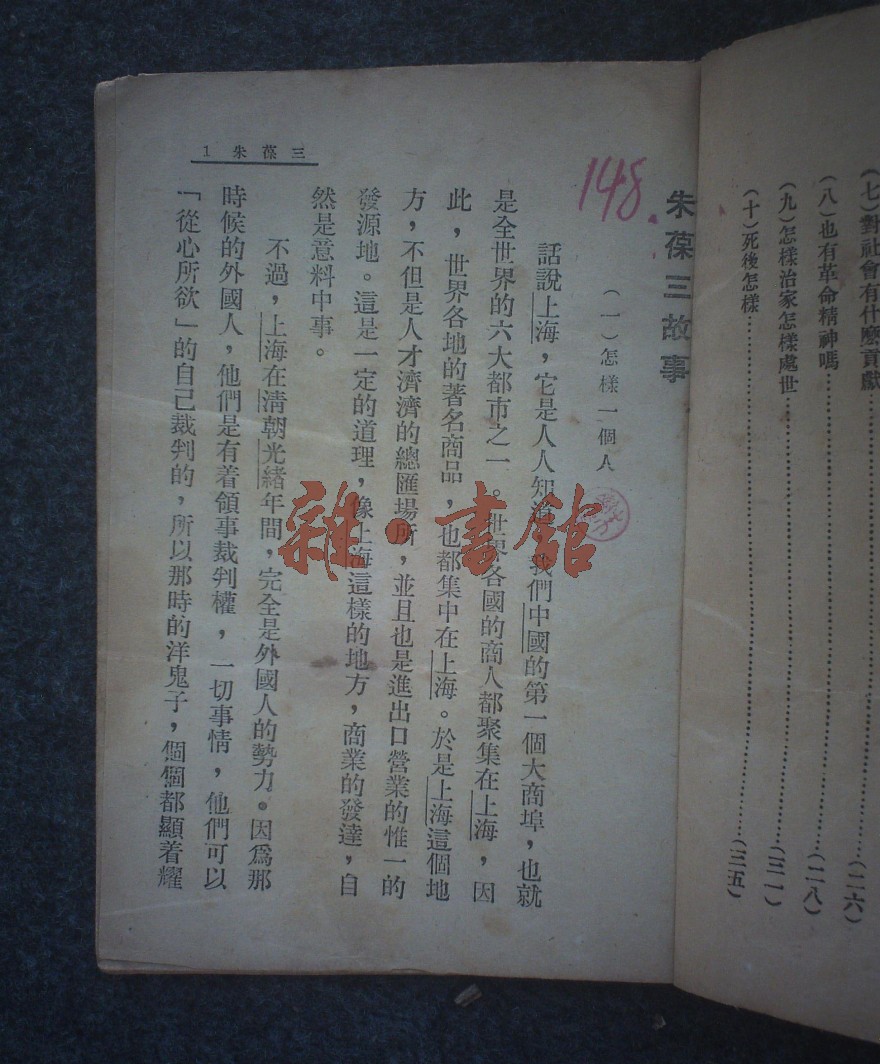 （七）對社會有什麽貢獻……（二六）
（八）也有革命精神嗎……（二八）
（九）怎樣治家怎樣處世……（三一）
（十）死後怎樣……（三五）
三葆朱 1
148.
朱葆三故事
（一）怎樣一個人
話說上海，它是人人知道，我們中國的第一個大商埠，也就
是全世界的六大都市之一。世界各國的商人都聚集在上海，因
此，世界各地的著名商品，也都集中在上海。於是上海這個地
方，不但是人才濟濟的總匯場所，並且也是進出口營業的惟一的
發源地。這是一定的道理，像上海這樣的地方，商業的發達，自
然是意料中事。
不過，上海在清朝光緒年間，完全是外國人的勢力。因爲那
時候的外國人，他們是有着領事裁判權，一切事情，他們可以
「從心所欲」的自己裁判的，所以那時的洋鬼子，個個都顯着耀
雜·書館